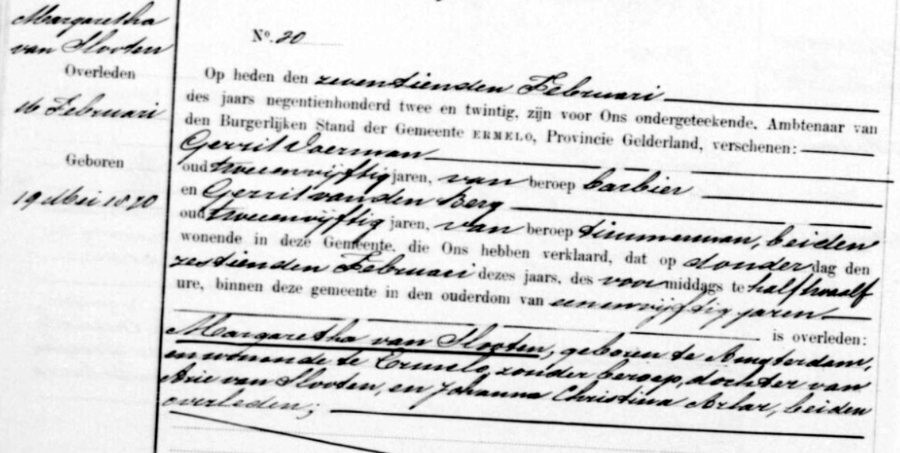 Margaretha
van Slooten
Overleden
16 Februari
Geboren
19 Mei 1870
No. 20
Op heden den zeventienden Februari
des jaars negentienhonderd twee en twintig, zijn voor Ons ondergeteekende, Ambtenaar van
den Burgerlijken Stand der Gemeente ERMELO, Provincie Gelderland, verschenen:
Gerrit
oud tweeenvijftig jaren, van beroep barbier
en Gerrit van den Berg
oud tweeenvijftig jaren, van beroep timmerman, beiden
wonende in deze Gemeente, die Ons hebben verklaard, dat op donderdag den
zestienden Februari dezes jaars, des voormiddags te half twaalf
ure, binnen deze gemeente in den ouderdom van eenenvijftig jaren
is overleden:
Margaretha van Slooten, geboren te Amsterdam,
en wonende te Ermelo, zonder beroep, dochter van
Arie van Slooten, en Johanna Christina beiden
overleden;